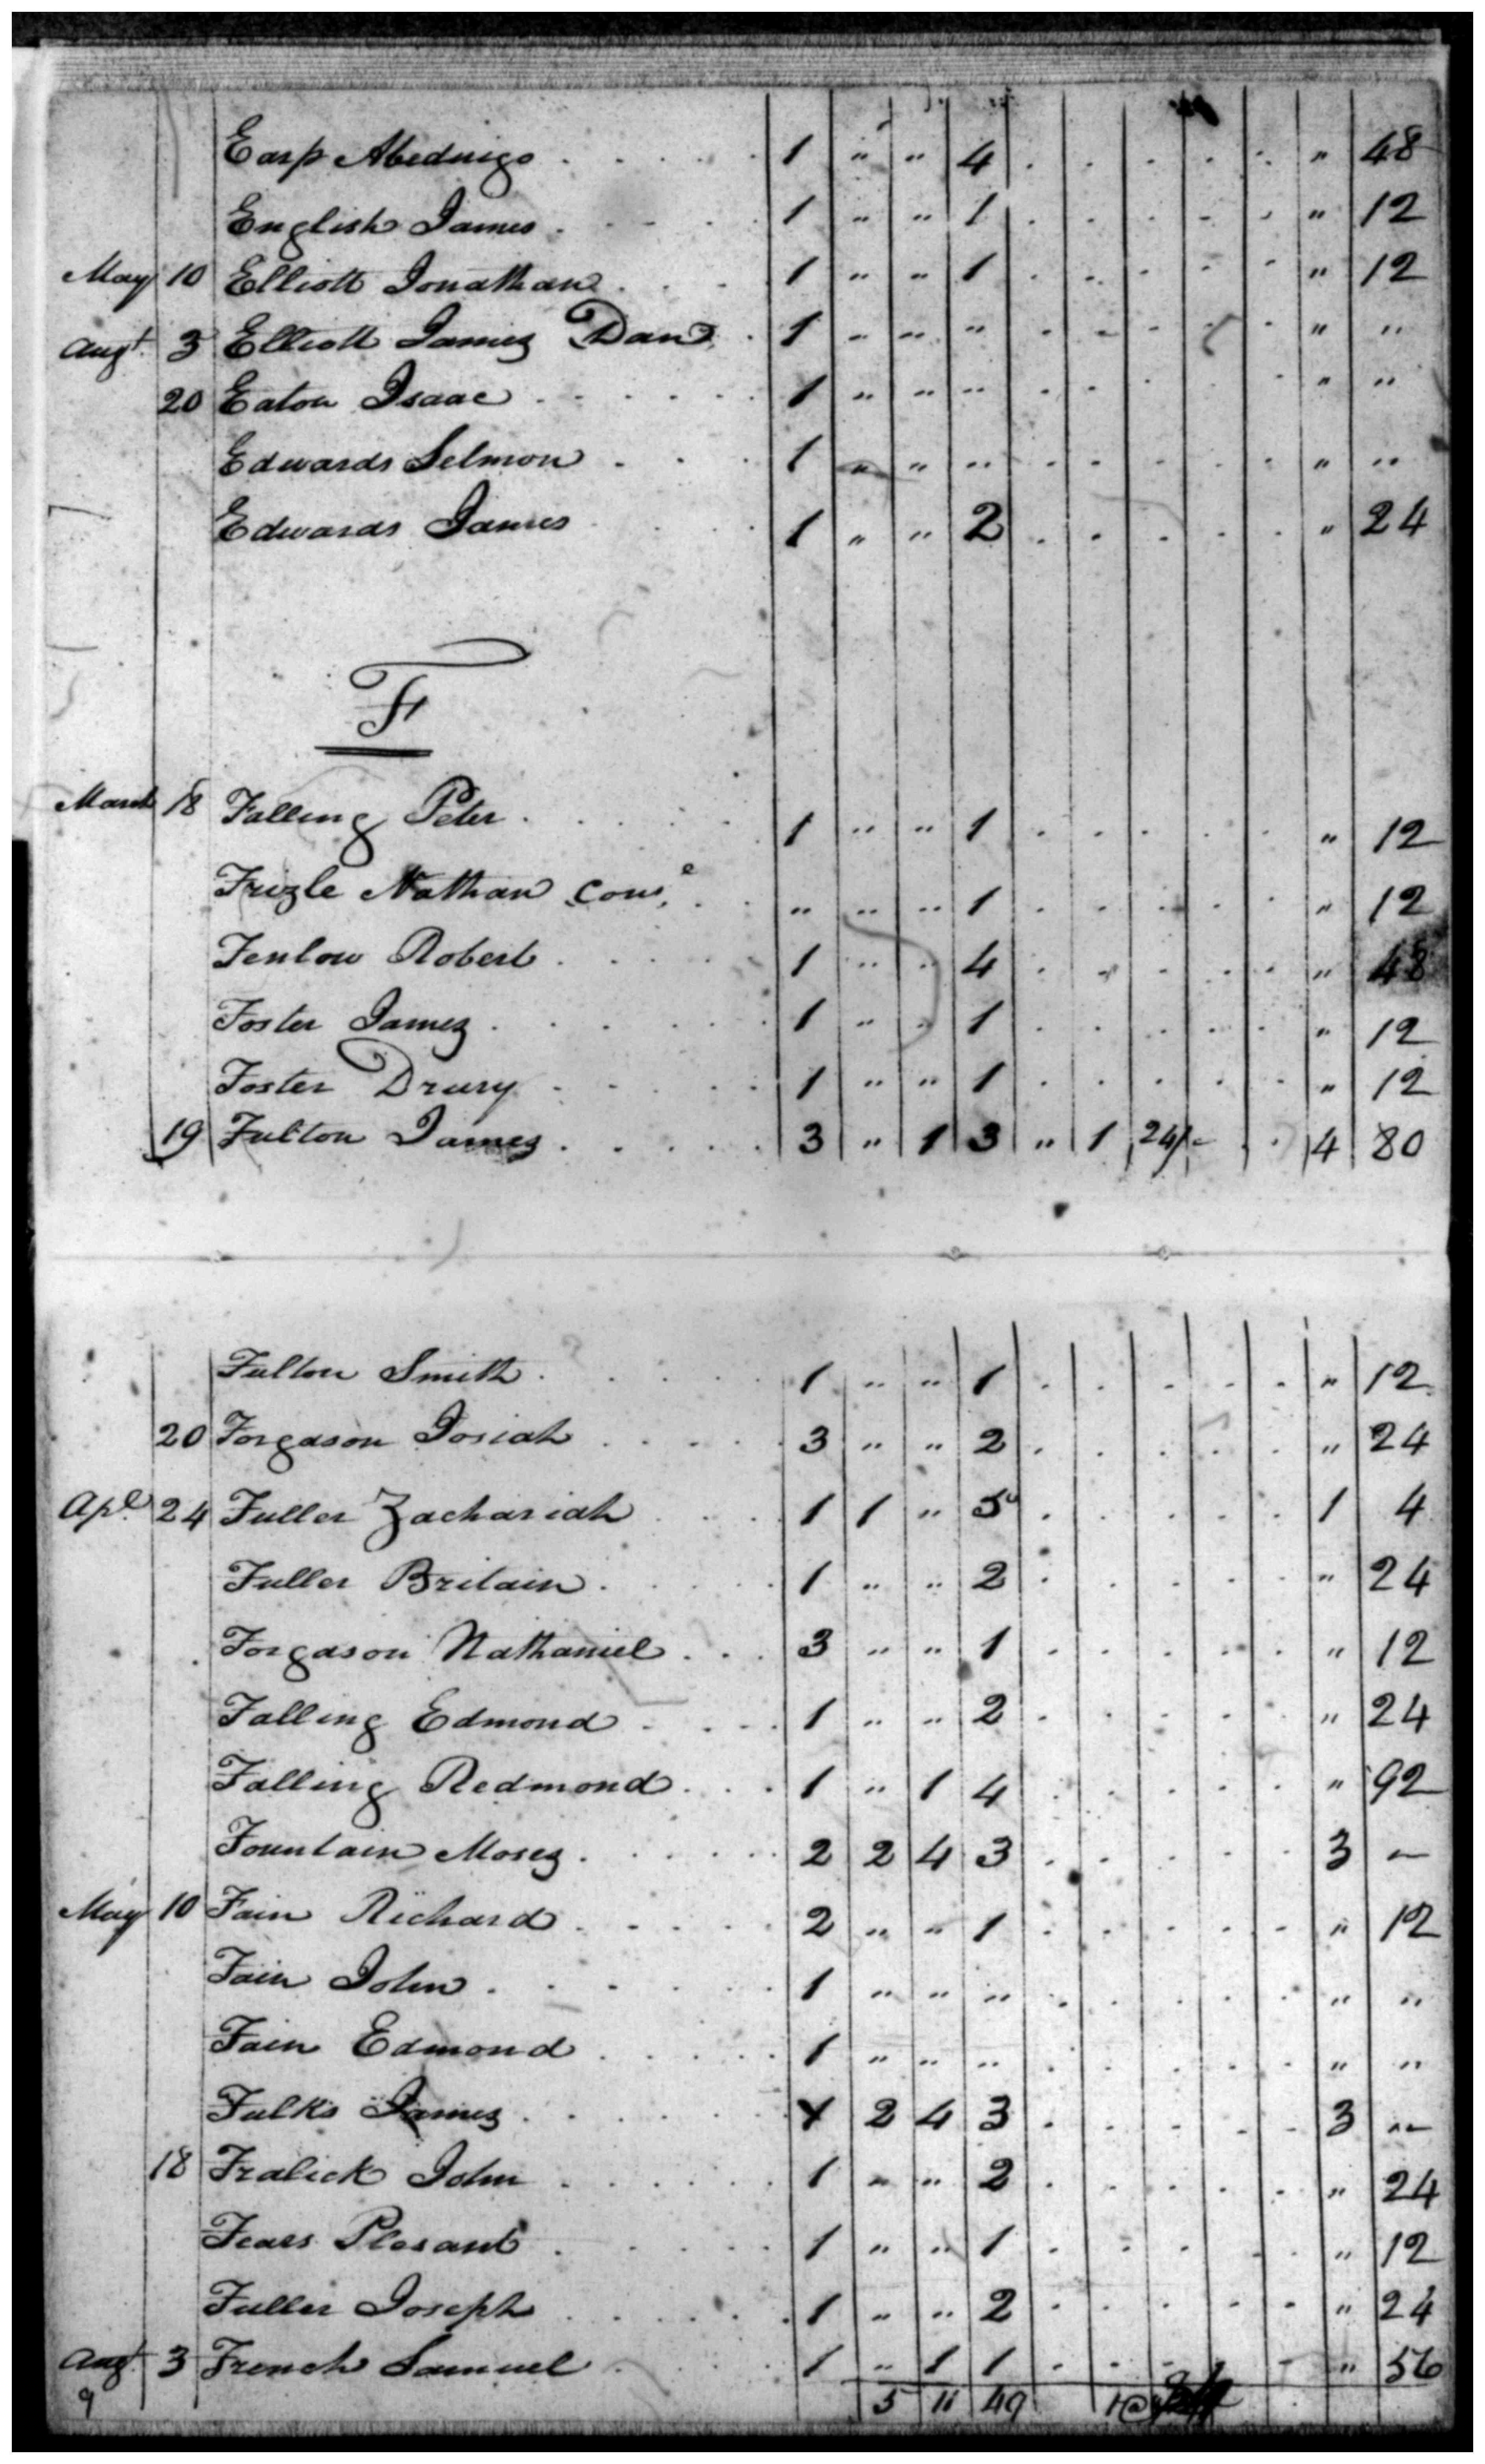 Earp Abednigo . . . . . 1 " " 4 . . . . . " 48
English James . . . . 1 " " 1 . . . . . " 12
May 10 Elliott Jonathan . . . 1 " " 1 . . . . . " 12
Augt. 3 Elliott James Dan . 1 " " " . . . . . " "
20 Eaton Isaac . . . . . . 1 " " " . . . . " "
Edwards Selmon . . . 1 " " " . . . . . " "
Edwards James . . . . 1 " " 2 . . . . . " 24
F
March 18 Falling Peter . . . . . 1 " " 1 . . . . . " 12
Frizle Nathan Conse. . . " " " 1 . . . . . " 12
Fenlow Robert . . . . 1 " " 4 . . . . . " 48
Foster James . . . . . . 1 " " 1 . . . . . " 12
Foster Drury . . . . . 1 " " 1 . . . . . " 12
19 Fulton James . . . . . 3 " 1 3 " 1 24/- . . 4 80
Fulton Smith . . . . . 1 " " 1 . . . . . " 12
20 Forgason Josiah . . . . . 3 " " 2 . . . . . " 24
Apl. 24 Fuller Zachariah . . . 1 1 " 5 . . . . . 1 4
Fuller Britain . . . . . 1 " " 2 . . . . . " 24
Forgason Nathaniel . . . 3 " " 1 . . . . . " 12
Falling Edmond . . . . 1 " " 2 . . . . . " 24
Falling Redmond . . . 1 " 1 4 . . . . . " 92
Fountain Moses . . . . . . 2 2 4 3 . . . . . 3 —
May 10 Fain Richard . . . . . 2 " " 1 . . . . . " 12
Fain John . . . . . . 1 " " " . . . . . " "
Fain Edmond . . . . . 1 " " " . . . . . " "
Fulks James . . . . . . 1 2 4 3 . . . . . 3 "
18 Fralick John . . . . . . 1 " " 2 . . . . . " 24
Fears Plesant . . . . . 1 " " 1 . . . . . " 12
Fuller Joseph . . . . . . 1 " " 2 . . . . . " 24
Augt 3 French Samuel . . . . 1 " 1 1 . . . . . " 56
9 5 11 49 1@